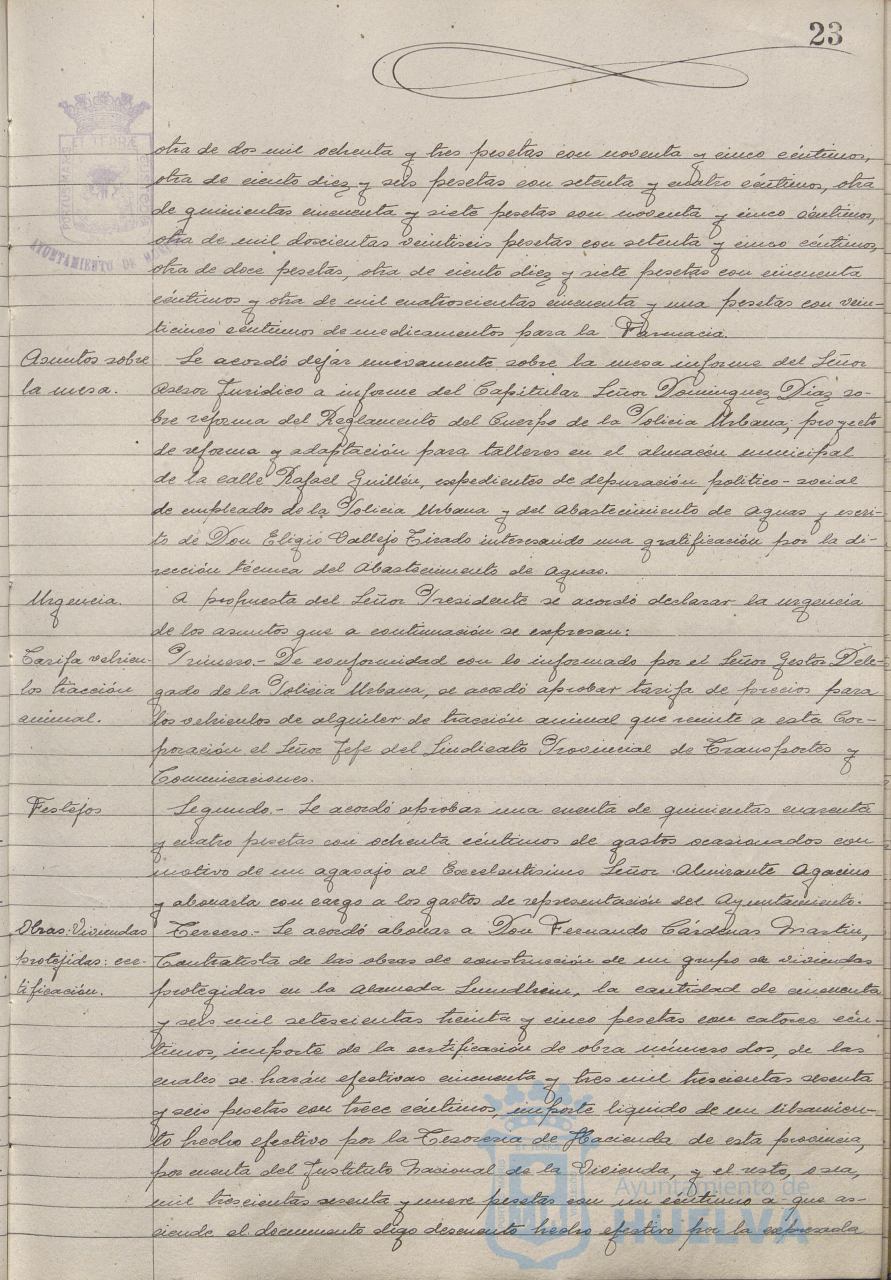 23
otra de dos mil ochenta y tres pesetas con noventa y cinco céntimos,
otra de ciento diez y seis pesetas con setenta y cuatro céntimos, otra
de quinientas cincuenta y siete pesetas con noventa y cinco céntimos,
otra de mil doscientas veintiseis pesetas con setenta y cinco céntimos,
otra de doce pesetas, otra de ciento diez y siete pesetas con cincuenta
céntimos y otra de mil cuatroscientas cincuenta y una pesetas con vein-
ticinco céntimos de medicamentos para la Farmacia.
Asuntos sobre
la mesa.
Se acordó dejar nuevamente sobre la mesa informe del Señor
Asesor Jurídico a informe del Capitular Señor Dominguez Diaz so-
bre reforma del Reglamento del Cuerpo de la Policia Urbana; proyecto
de reforma y adaptación para talleres en el almacén municipal
de la calle Rafael Guillén, expedientes de depuración politico-social
de empleados de la Policia Urbana y del Abastecimiento de Aguas y escri-
to de Don Eligio Vallejo Tirado interesando una gratificación por la di-
rección técnica del Abastecimiento de Aguas.
Urgencia.
A propuesta del Señor Presidente se acordó declarar la urgencia
de los asuntos que a continuación se expresan:
Tarifa vehicu-
los tracción
animal.
Primero.- De conformidad con lo informado por el Señor Gestor Dele-
gado de la Policia Urbana, se acordó aprobar tarifa de precios para
los vehiculos de alquiler de tracción animal que remite a esta Cor-
poración el Señor Jefe del Sindicato Provincial de Transportes y
Comunicaciones.
Festejos
Segundo.- Se acordó aprobar una cuenta de quinientas cuarenta
y cuatro pesetas con ochenta céntimos de gastos ocasionados con
motivo de un agasajo al Excelentisimo Señor Almirante Agacino
y abonarla con cargo a los gastos de representación del Ayuntamiento.
Obras: Viviendas
protejidas: cer-
tificación.
Tercero.- Se acordó abonar a Don Fernando Cárdenas Martin,
Contratista de las obras de construcción de un grupo de viviendas
protegidas en la Alameda Sundhein, la cantidad de cincuenta
y seis mil setescientas treinta y cinco pesetas con catorce cén-
timos, importe de la certificación de obra número dos, de las
cuales se harán efectivas cincuenta y tres mil trescientas sesenta
y seis pesetas con trece céntimos, importe liquido de un libramien-
to hecho efectivo por la Tesoreria de Hacienda de esta provincia,
por cuenta del Instituto Nacional de la Vivienda, y el resto, o sea,
mil trescientas sesenta y nueve pesetas con un céntimo a que as-
ciende el documento digo descuento hecho efectivo por la expresada
Ayuntamiento de
HUELVA